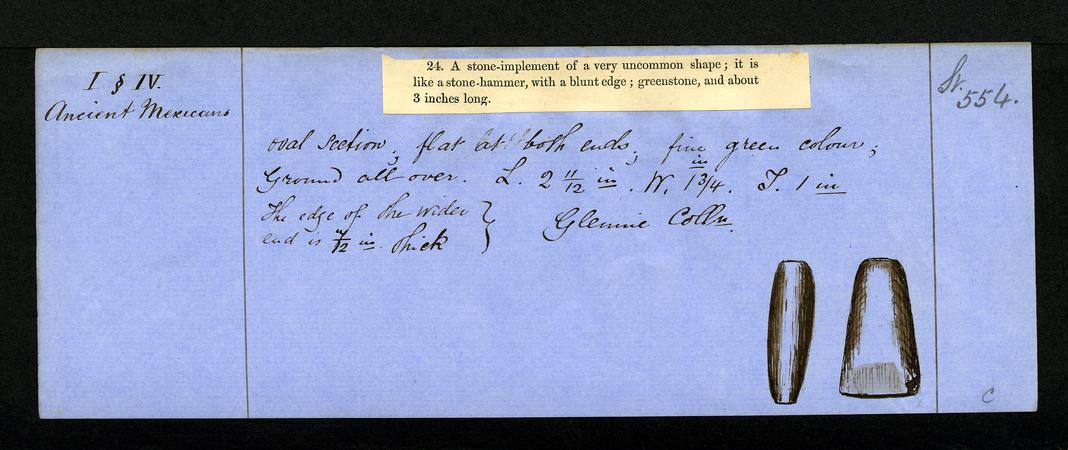 I § IV.
Ancient Mexicans
24. A stone-implement of a very uncommon shape; it is
like a stone-hammer, with a blunt edge; greenstone, and about
3 inches long.
St. 554.
oval section, flat at both ends; fine green colour;
Ground all over. L. 2 11/12 in. W. 1 3/4 in. T. 1 in
The edge of the wider
end is in. thick
Glennie Colln.
C